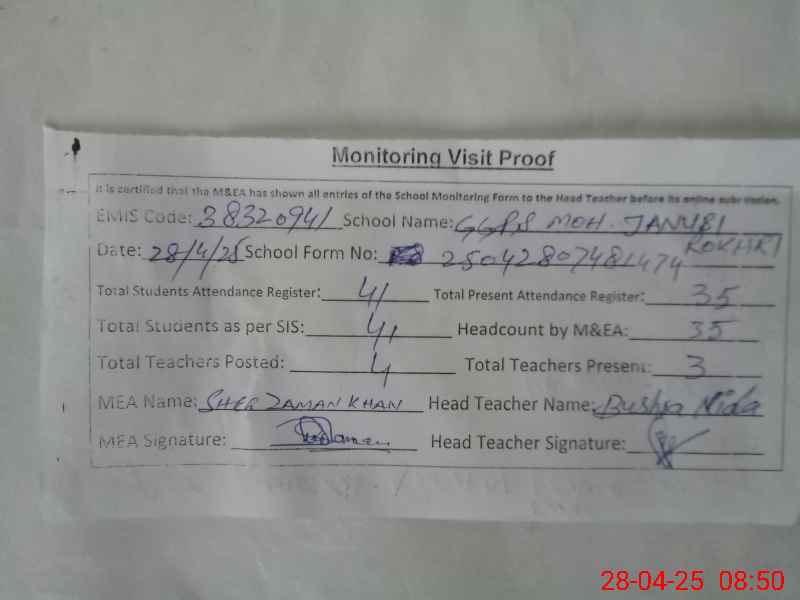 Monitoring Visit Proof
It is certified that the M&EA has shown all entries of the School Monitoring Form to the Head Teacher before its online submission.
EMIS Code: 38320941 School Name: GGPS MOH. JANUBI
ROKHRI
Date: 28/4/25 School Form No: 25042807481474
Total Students Attendance Register: 41 Total Present Attendance Register: 35
Total Students as per SIS: 41 Headcount by M&EA: 35
Total Teachers Posted: 4 Total Teachers Present: 3
MEA Name: SHER ZAMAN KHAN Head Teacher Name: Bushra Nida
MEA Signature: Head Teacher Signature:
28-04-25 08:50